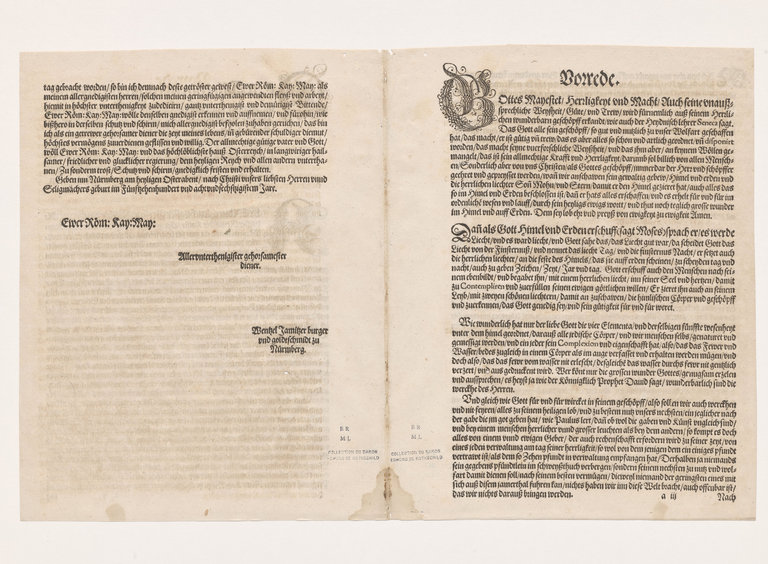 tag gebracht worden/ so bin ich demnach deste getröster gewest/ Ewer Röm: Kay: May: als
meinem allergnedigisten herren/ solchen meinen geringfügigen angewendten fleyß vnd arbeyt/
hiemit in höchster vnterthenigkeyt zudediciren/ gantz vnterthenigist vnd demütigist Bittende/
Ewer Röm: Kay: May: wölle dieselben genedigist erkennen vnd auffnemen/ vnd fürohin/ wie
bißhero in derselben schutz vnd schirm/ mich allergnedigist befholen zuhaben geruchen/ das bin
ich als ein getrewer gehorsamer diener die zeyt meines lebens/ in gebürender schuldiger diemut/
höchstes vermögens zuuerdienen geflissen vnd willig. Der allmechtige gütige vater vnd Gott/
wöll Ewer Röm: Kay: May: vnd das hochlöblichste hauß Osterreych/ in langwiriger heil-
samer/ friedlicher vnd glücklicher regierung/ dem heyligen Reych vnd allen andern vnterthа-
nen/ Zu sonderm trost/ Schutz vnd schirm/ gnedigklich fristen vnd erhalten.
Geben inn Nürmberg am heyligen Osterabent/ nach Christi vnsers liebsten Herren vnnd
Seligmachers geburt im Fünfftzehenhundert vnd achtvndsechtzigistem Jare.
Ewer Röm: Kay: May:
Allervnterthenigster gehorsamester
diener.
Wentzel Jamitzer burger
vnd goldtschmidt zu
Nürmberg.
E R
M L
COLLECTION DU BARON
EDMOND DE ROTHSCHILD
Vorrede.
GOttes Mayestet/ Herrligkeyt vnd Macht/ Auch seine vnauß-
sprechliche Weyßheit/ Güte/ vnd Trew/ wird fürnemlich auß seinem Herrli-
chen wunderbarn geschöpff erkandt/ wie auch der Heydnisch lehrer Seneca sagt.
Das Gott alle sein geschöpff/ so gut vnd nutzlich zu vnser Wolfart geschaffen
hat/ das macht/ er ist gütig vnd trew/ das er es aber alles so schön vnd artlich geordnet/ vnd disponirt
worden/ das macht seyne vnerforschliche Weyßheit/ vnd das jhm aber/ an keynem Wöllen ge-
mangelt/ das ist sein allmechtige Krafft vnd Herrligkeyt/ darumb sol billich von allen Mensch-
en/ Sonderlich aber von vns Christen/ als Gottes geschöpff/ jmmerdar der Herr vnd schöpffer
geehret vnd gepreysset werden/ wañ wir anschawen sein gewaltig gebew/ Himel vnd erden vnd
die herrlichen liechter Soñ Mohn/ vnd Stern/ damit er den Himel gezieret hat/ auch alles das
so im Himel vnd Erden beschlossen ist/ daß er hats alles erschaffen/ vnd es erhelt für vnd für im
ordenlichẽ wesen vnd lauff/ durch sein heyligs ewigs wort/ vnd thut noch teglich grosse wunder
im Himel vnd auff Erden. Dem sey lob ehr vnd preyß von ewigkeyt zu ewigkeit Amen.
Dañ als Gott Himel vnd Erden erschuff/ sagt Moses) sprach er/ es werde
Liecht/ vnd es ward liecht/ vnd Gott sahe das/ das Liecht gut war/ da scheidet Gott das
Liecht von der Finsternuß/ vnd nennet das liecht Tag/ vnd die finsternus Nacht/ er setzet auch
die herrlichen liechter/ an die feste des Himels/ das sie auff erden scheinen/ zu scheyden tag vnd
nacht/ auch zu geben Zeichen/ Zeyt/ Jar vnd tag. Gott erschuff auch den Menschen nach sei-
nem ebenbildt/ vnd begabet jhn/ mit einem herrlichen liecht/ inn seiner Seel vnd hertzen/ damit
zu Contempliren vnd zuerfüllen seinen ewigen göttlichen willen/ Er zieret jhn auch an seinem
Leyb/ mit zweyen schönen liechtern/ damit an zuschawen/ die himlischen Cörper vnd geschöpff
vnd zuerkennen/ das Gott genedig sey/ vnd sein gütigkeit für vnd für weret.
Wie wunderlich hat nur der liebe Gott die vier Elementa/ vnd derselbigen fünffte wesenheyt
vnter dem himel geordnet/ darauß alle jrdische Cörper/ vnd wir menschen selbs/ generiret vnd
gemessigt werden/ vnd ein jeder sein Complexion vnd eigenschafft hat/ also/ das das Fewr vnd
Wasser/ bedes zugleich in einem Cörper als im auge verfasset vnd erhalten werden mügen/ vnd
doch also/ das das fewr vom wasser nit erlescht/ desgleicht das wasser durchs fewr nit gentzlich
verzert/ vnd auß gedrucknet wird. Wer könt nur die grossen wunder Gottes/ genugsam erzelen
vnd aussprechen/ es heyst ja wie der Königklich Prophet Dauid sagt/ wunderbarlich sind die
werckhe des Herren.
Vnd gleich wie Gott für vnd für wircket in seinem geschöpff/ also sollen wir auch werckhen
vnd nit feyren/ alles zu seinem heiligen lob/ vnd zu bestem nutz vnsers nechsten/ ein jeglicher nach
der gabe die jm got geben hat/ wie Paulus lert/ dañ ob wol die gaben vnd Künst vngleich sind/
vnd bey einem menschen herrlicher vnnd grosser leuchten als bey dem andern/ so kompt es doch
alles von einem vnnd ewigen Geber/ der auch rechenschafft erfordern wird zu seiner zeyt/ von
eines jeden verwaltung am tag seiner herligkeit/ so wol von dem jenigen dem ein einiges pfundt
vertrawt ist/ als dem so Zehen pfundt in verwaltung empfangen hat/ Derhalben sa niemandt
sein gegebens pfündtlein im schweystuch verbergen/ sondern seinem nechsten zu nutz vnd wol-
fart damit dienen soll/ nach seinem besten vermügen/ dieweyl niemand der geringsten eines mit
sich auß disem jamerthal fuhren kan/ nichts haben wir inn diese Welt bracht/ auch offenbar ist/
das wir nichts darauß bringen werden.
a iij
Nach
E R
M L
COLLECTION DU BARON
EDMOND DE ROTHSCHILD